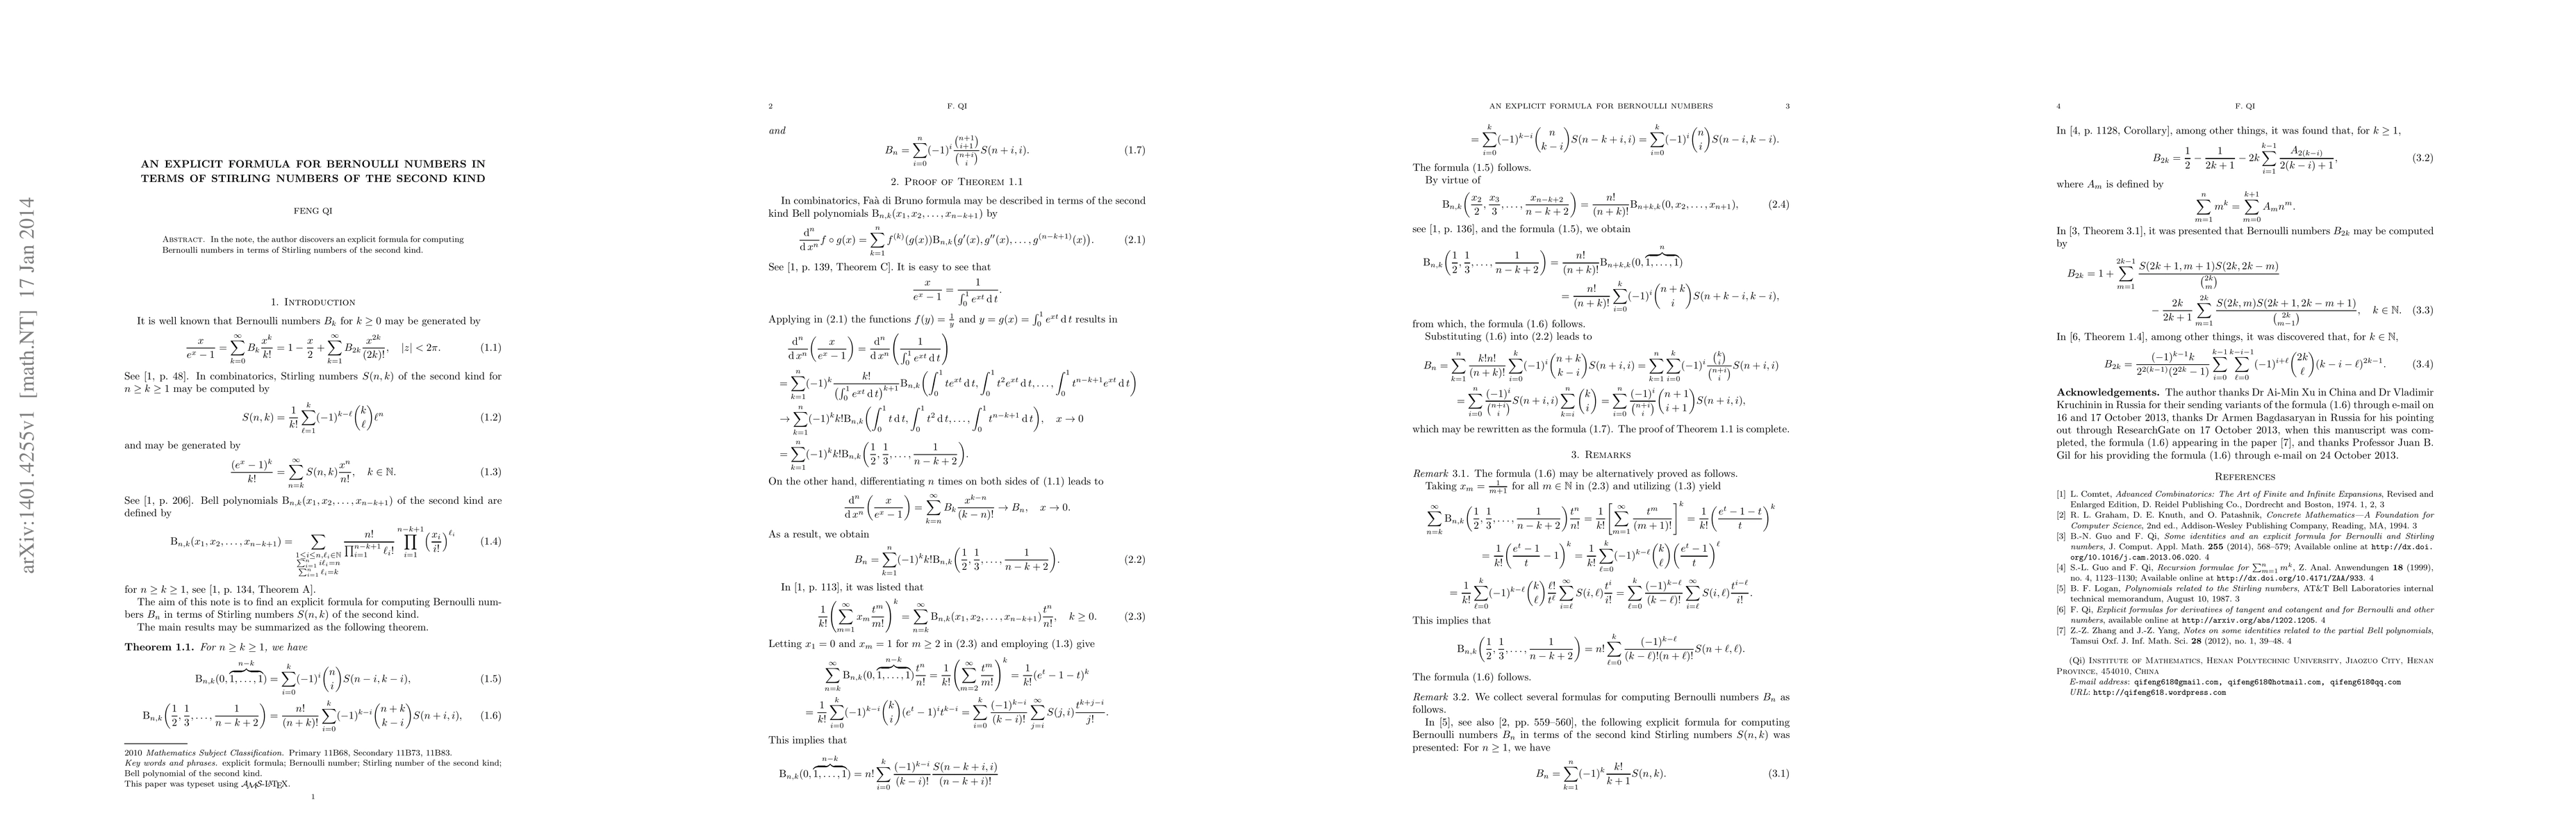 arXiv:1401.4255v1 [math.NT] 17 Jan 2014
AN EXPLICIT FORMULA FOR BERNOULLI NUMBERS IN
TERMS OF STIRLING NUMBERS OF THE SECOND KIND
FENG QI
ABSTRACT. In the note, the author discovers an explicit formula for computing
Bernoulli numbers in terms of Stirling numbers of the second kind.
1. INTRODUCTION
It is well known that Bernoulli numbers $B_k$ for $k \ge 0$ may be generated by
$\frac{x}{e^x-1} = \sum_{k=0}^{\infty} B_k \frac{x^k}{k!} = 1 - \frac{x}{2} + \sum_{k=1}^{\infty} B_{2k} \frac{x^{2k}}{(2k)!}, \quad |z| < 2\pi.$ (1.1)
See [1, p. 48]. In combinatorics, Stirling numbers $S(n,k)$ of the second kind for
$n \ge k \ge 1$ may be computed by
$S(n,k) = \frac{1}{k!} \sum_{\ell=1}^{k} (-1)^{k-\ell} \binom{k}{\ell} \ell^n$ (1.2)
and may be generated by
$\frac{(e^x-1)^k}{k!} = \sum_{n=k}^{\infty} S(n,k) \frac{x^n}{n!}, \quad k \in \mathbb{N}.$ (1.3)
See [1, p. 206]. Bell polynomials $B_{n,k}(x_1, x_2, \ldots, x_{n-k+1})$ of the second kind are
defined by
$B_{n,k}(x_1, x_2, \ldots, x_{n-k+1}) = \sum_{\substack{1 \le i \le n, \ell_i \in \mathbb{N} \\ \sum_{i=1}^{n} i\ell_i = n \\ \sum_{i=1}^{n} \ell_i = k}} \frac{n!}{\prod_{i=1}^{n-k+1} \ell_i!} \prod_{i=1}^{n-k+1} \left(\frac{x_i}{i!}\right)^{\ell_i}$ (1.4)
for $n \ge k \ge 1$, see [1, p. 134, Theorem A].
The aim of this note is to find an explicit formula for computing Bernoulli num-
bers $B_n$ in terms of Stirling numbers $S(n,k)$ of the second kind.
The main results may be summarized as the following theorem.
Theorem 1.1. For $n \ge k \ge 1$, we have
$B_{n,k}(0, \overbrace{1, \ldots, 1}^{n-k}) = \sum_{i=0}^{k} (-1)^i \binom{n}{i} S(n-i, k-i),$ (1.5)
$B_{n,k}\left(\frac{1}{2}, \frac{1}{3}, \ldots, \frac{1}{n-k+2}\right) = \frac{n!}{(n+k)!} \sum_{i=0}^{k} (-1)^{k-i} \binom{n+k}{k-i} S(n+i, i),$ (1.6)
2010 Mathematics Subject Classification. Primary 11B68, Secondary 11B73, 11B83.
Key words and phrases. explicit formula; Bernoulli number; Stirling number of the second kind;
Bell polynomial of the second kind.
This paper was typeset using AMS-LATEX.
1
2 F. QI
and
$B_n = \sum_{i=0}^{n} (-1)^i \frac{\binom{n+1}{i+1}}{\binom{n+i}{i}} S(n+i, i).$ (1.7)
2. PROOF OF THEOREM 1.1
In combinatorics, Faà di Bruno formula may be described in terms of the second
kind Bell polynomials $B_{n,k}(x_1, x_2, \ldots, x_{n-k+1})$ by
$\frac{d^n}{dx^n} f \circ g(x) = \sum_{k=1}^{n} f^{(k)}(g(x)) B_{n,k}(g'(x), g''(x), \ldots, g^{(n-k+1)}(x)).$ (2.1)
See [1, p. 139, Theorem C]. It is easy to see that
$\frac{x}{e^x-1} = \frac{1}{\int_0^1 e^{xt} dt}.$
Applying in (2.1) the functions $f(y) = \frac{1}{y}$ and $y = g(x) = \int_0^1 e^{xt} dt$ results in
$\frac{d^n}{dx^n}\left(\frac{x}{e^x-1}\right) = \frac{d^n}{dx^n}\left(\frac{1}{\int_0^1 e^{xt} dt}\right)$
$= \sum_{k=1}^{n} (-1)^k \frac{k!}{(\int_0^1 e^{xt} dt)^{k+1}} B_{n,k}\left(\int_0^1 te^{xt} dt, \int_0^1 t^2 e^{xt} dt, \ldots, \int_0^1 t^{n-k+1} e^{xt} dt\right)$
$\to \sum_{k=1}^{n} (-1)^k k! B_{n,k}\left(\int_0^1 t dt, \int_0^1 t^2 dt, \ldots, \int_0^1 t^{n-k+1} dt\right), \quad x \to 0$
$= \sum_{k=1}^{n} (-1)^k k! B_{n,k}\left(\frac{1}{2}, \frac{1}{3}, \ldots, \frac{1}{n-k+2}\right).$
On the other hand, differentiating $n$ times on both sides of (1.1) leads to
$\frac{d^n}{dx^n}\left(\frac{x}{e^x-1}\right) = \sum_{k=n}^{\infty} B_k \frac{x^{k-n}}{(k-n)!} \to B_n, \quad x \to 0.$
As a result, we obtain
$B_n = \sum_{k=1}^{n} (-1)^k k! B_{n,k}\left(\frac{1}{2}, \frac{1}{3}, \ldots, \frac{1}{n-k+2}\right).$ (2.2)
In [1, p. 113], it was listed that
$\frac{1}{k!}\left(\sum_{m=1}^{\infty} x_m \frac{t^m}{m!}\right)^k = \sum_{n=k}^{\infty} B_{n,k}(x_1, x_2, \ldots, x_{n-k+1}) \frac{t^n}{n!}, \quad k \ge 0.$ (2.3)
Letting $x_1 = 0$ and $x_m = 1$ for $m \ge 2$ in (2.3) and employing (1.3) give
$\sum_{n=k}^{\infty} B_{n,k}(0, \overbrace{1, \ldots, 1}^{n-k}) \frac{t^n}{n!} = \frac{1}{k!}\left(\sum_{m=2}^{\infty} \frac{t^m}{m!}\right)^k = \frac{1}{k!}(e^t - 1 - t)^k$
$= \frac{1}{k!} \sum_{i=0}^{k} (-1)^{k-i} \binom{k}{i} (e^t-1)^i t^{k-i} = \sum_{i=0}^{k} \frac{(-1)^{k-i}}{(k-i)!} \sum_{j=i}^{\infty} S(j,i) \frac{t^{k+j-i}}{j!}.$
This implies that
$B_{n,k}(0, \overbrace{1, \ldots, 1}^{n-k}) = n! \sum_{i=0}^{k} \frac{(-1)^{k-i}}{(k-i)!} \frac{S(n-k+i, i)}{(n-k+i)!}$
AN EXPLICIT FORMULA FOR BERNOULLI NUMBERS 3
$= \sum_{i=0}^{k} (-1)^{k-i} \binom{n}{k-i} S(n-k+i, i) = \sum_{i=0}^{k} (-1)^i \binom{n}{i} S(n-i, k-i).$
The formula (1.5) follows.
By virtue of
$B_{n,k}\left(\frac{x_2}{2}, \frac{x_3}{3}, \ldots, \frac{x_{n-k+2}}{n-k+2}\right) = \frac{n!}{(n+k)!} B_{n+k,k}(0, x_2, \ldots, x_{n+1}),$ (2.4)
see [1, p. 136], and the formula (1.5), we obtain
$B_{n,k}\left(\frac{1}{2}, \frac{1}{3}, \ldots, \frac{1}{n-k+2}\right) = \frac{n!}{(n+k)!} B_{n+k,k}(0, \overbrace{1, \ldots, 1}^{n})$
$= \frac{n!}{(n+k)!} \sum_{i=0}^{k} (-1)^i \binom{n+k}{i} S(n+k-i, k-i),$
from which, the formula (1.6) follows.
Substituting (1.6) into (2.2) leads to
$B_n = \sum_{k=1}^{n} \frac{k!n!}{(n+k)!} \sum_{i=0}^{k} (-1)^i \binom{n+k}{k-i} S(n+i, i) = \sum_{k=1}^{n} \sum_{i=0}^{k} (-1)^i \frac{\binom{k}{i}}{\binom{n+i}{i}} S(n+i, i)$
$= \sum_{i=0}^{n} \frac{(-1)^i}{\binom{n+i}{i}} S(n+i, i) \sum_{k=i}^{n} \binom{k}{i} = \sum_{i=0}^{n} \frac{(-1)^i}{\binom{n+i}{i}} \binom{n+1}{i+1} S(n+i, i),$
which may be rewritten as the formula (1.7). The proof of Theorem 1.1 is complete.
3. REMARKS
Remark 3.1. The formula (1.6) may be alternatively proved as follows.
Taking $x_m = \frac{1}{m+1}$ for all $m \in \mathbb{N}$ in (2.3) and utilizing (1.3) yield
$\sum_{n=k}^{\infty} B_{n,k}\left(\frac{1}{2}, \frac{1}{3}, \ldots, \frac{1}{n-k+2}\right) \frac{t^n}{n!} = \frac{1}{k!}\left[\sum_{m=1}^{\infty} \frac{t^m}{(m+1)!}\right]^k = \frac{1}{k!}\left(\frac{e^t-1-t}{t}\right)^k$
$= \frac{1}{k!}\left(\frac{e^t-1}{t} - 1\right)^k = \frac{1}{k!} \sum_{\ell=0}^{k} (-1)^{k-\ell} \binom{k}{\ell} \left(\frac{e^t-1}{t}\right)^{\ell}$
$= \frac{1}{k!} \sum_{\ell=0}^{k} (-1)^{k-\ell} \binom{k}{\ell} \frac{\ell!}{t^{\ell}} \sum_{i=\ell}^{\infty} S(i,\ell) \frac{t^i}{i!} = \sum_{\ell=0}^{k} \frac{(-1)^{k-\ell}}{(k-\ell)!} \sum_{i=\ell}^{\infty} S(i,\ell) \frac{t^{i-\ell}}{i!}.$
This implies that
$B_{n,k}\left(\frac{1}{2}, \frac{1}{3}, \ldots, \frac{1}{n-k+2}\right) = n! \sum_{\ell=0}^{k} \frac{(-1)^{k-\ell}}{(k-\ell)!(n+\ell)!} S(n+\ell, \ell).$
The formula (1.6) follows.
Remark 3.2. We collect several formulas for computing Bernoulli numbers $B_n$ as
follows.
In [5], see also [2, pp. 559–560], the following explicit formula for computing
Bernoulli numbers $B_n$ in terms of the second kind Stirling numbers $S(n,k)$ was
presented: For $n \ge 1$, we have
$B_n = \sum_{k=1}^{n} (-1)^k \frac{k!}{k+1} S(n,k).$ (3.1)
4 F. QI
In [4, p. 1128, Corollary], among other things, it was found that, for $k \ge 1$,
$B_{2k} = \frac{1}{2} - \frac{1}{2k+1} - 2k \sum_{i=1}^{k-1} \frac{A_{2(k-i)}}{2(k-i)+1},$ (3.2)
where $A_m$ is defined by
$\sum_{m=1}^{n} m^k = \sum_{m=0}^{k+1} A_m n^m.$
In [3, Theorem 3.1], it was presented that Bernoulli numbers $B_{2k}$ may be computed
by
$B_{2k} = 1 + \sum_{m=1}^{2k-1} \frac{S(2k+1, m+1)S(2k, 2k-m)}{\binom{2k}{m}}$
$- \frac{2k}{2k+1} \sum_{m=1}^{2k} \frac{S(2k, m)S(2k+1, 2k-m+1)}{\binom{2k}{m-1}}, \quad k \in \mathbb{N}.$ (3.3)
In [6, Theorem 1.4], among other things, it was discovered that, for $k \in \mathbb{N}$,
$B_{2k} = \frac{(-1)^{k-1}k}{2^{2(k-1)}(2^{2k}-1)} \sum_{i=0}^{k-1} \sum_{\ell=0}^{k-i-1} (-1)^{i+\ell} \binom{2k}{\ell} (k-i-\ell)^{2k-1}.$ (3.4)
Acknowledgements. The author thanks Dr Ai-Min Xu in China and Dr Vladimir
Kruchinin in Russia for their sending variants of the formula (1.6) through e-mail on
16 and 17 October 2013, thanks Dr Armen Bagdasaryan in Russia for his pointing
out through ResearchGate on 17 October 2013, when this manuscript was com-
pleted, the formula (1.6) appearing in the paper [7], and thanks Professor Juan B.
Gil for his providing the formula (1.6) through e-mail on 24 October 2013.
REFERENCES
[1] L. Comtet, Advanced Combinatorics: The Art of Finite and Infinite Expansions, Revised and
Enlarged Edition, D. Reidel Publishing Co., Dordrecht and Boston, 1974. 1, 2, 3
[2] R. L. Graham, D. E. Knuth, and O. Patashnik, Concrete Mathematics—A Foundation for
Computer Science, 2nd ed., Addison-Wesley Publishing Company, Reading, MA, 1994. 3
[3] B.-N. Guo and F. Qi, Some identities and an explicit formula for Bernoulli and Stirling
numbers, J. Comput. Appl. Math. 255 (2014), 568–579; Available online at http://dx.doi.
org/10.1016/j.cam.2013.06.020. 4
[4] S.-L. Guo and F. Qi, Recursion formulae for $\sum_{m=1}^{n} m^k$, Z. Anal. Anwendungen 18 (1999),
no. 4, 1123–1130; Available online at http://dx.doi.org/10.4171/ZAA/933. 4
[5] B. F. Logan, Polynomials related to the Stirling numbers, AT&T Bell Laboratories internal
technical memorandum, August 10, 1987. 3
[6] F. Qi, Explicit formulas for derivatives of tangent and cotangent and for Bernoulli and other
numbers, available online at http://arxiv.org/abs/1202.1205. 4
[7] Z.-Z. Zhang and J.-Z. Yang, Notes on some identities related to the partial Bell polynomials,
Tamsui Oxf. J. Inf. Math. Sci. 28 (2012), no. 1, 39–48. 4
(Qi) INSTITUTE OF MATHEMATICS, HENAN POLYTECHNIC UNIVERSITY, JIAOZUO CITY, HENAN
PROVINCE, 454010, CHINA
E-mail address: qifeng618@gmail.com, qifeng618@hotmail.com, qifeng618@qq.com
URL: http://qifeng618.wordpress.com